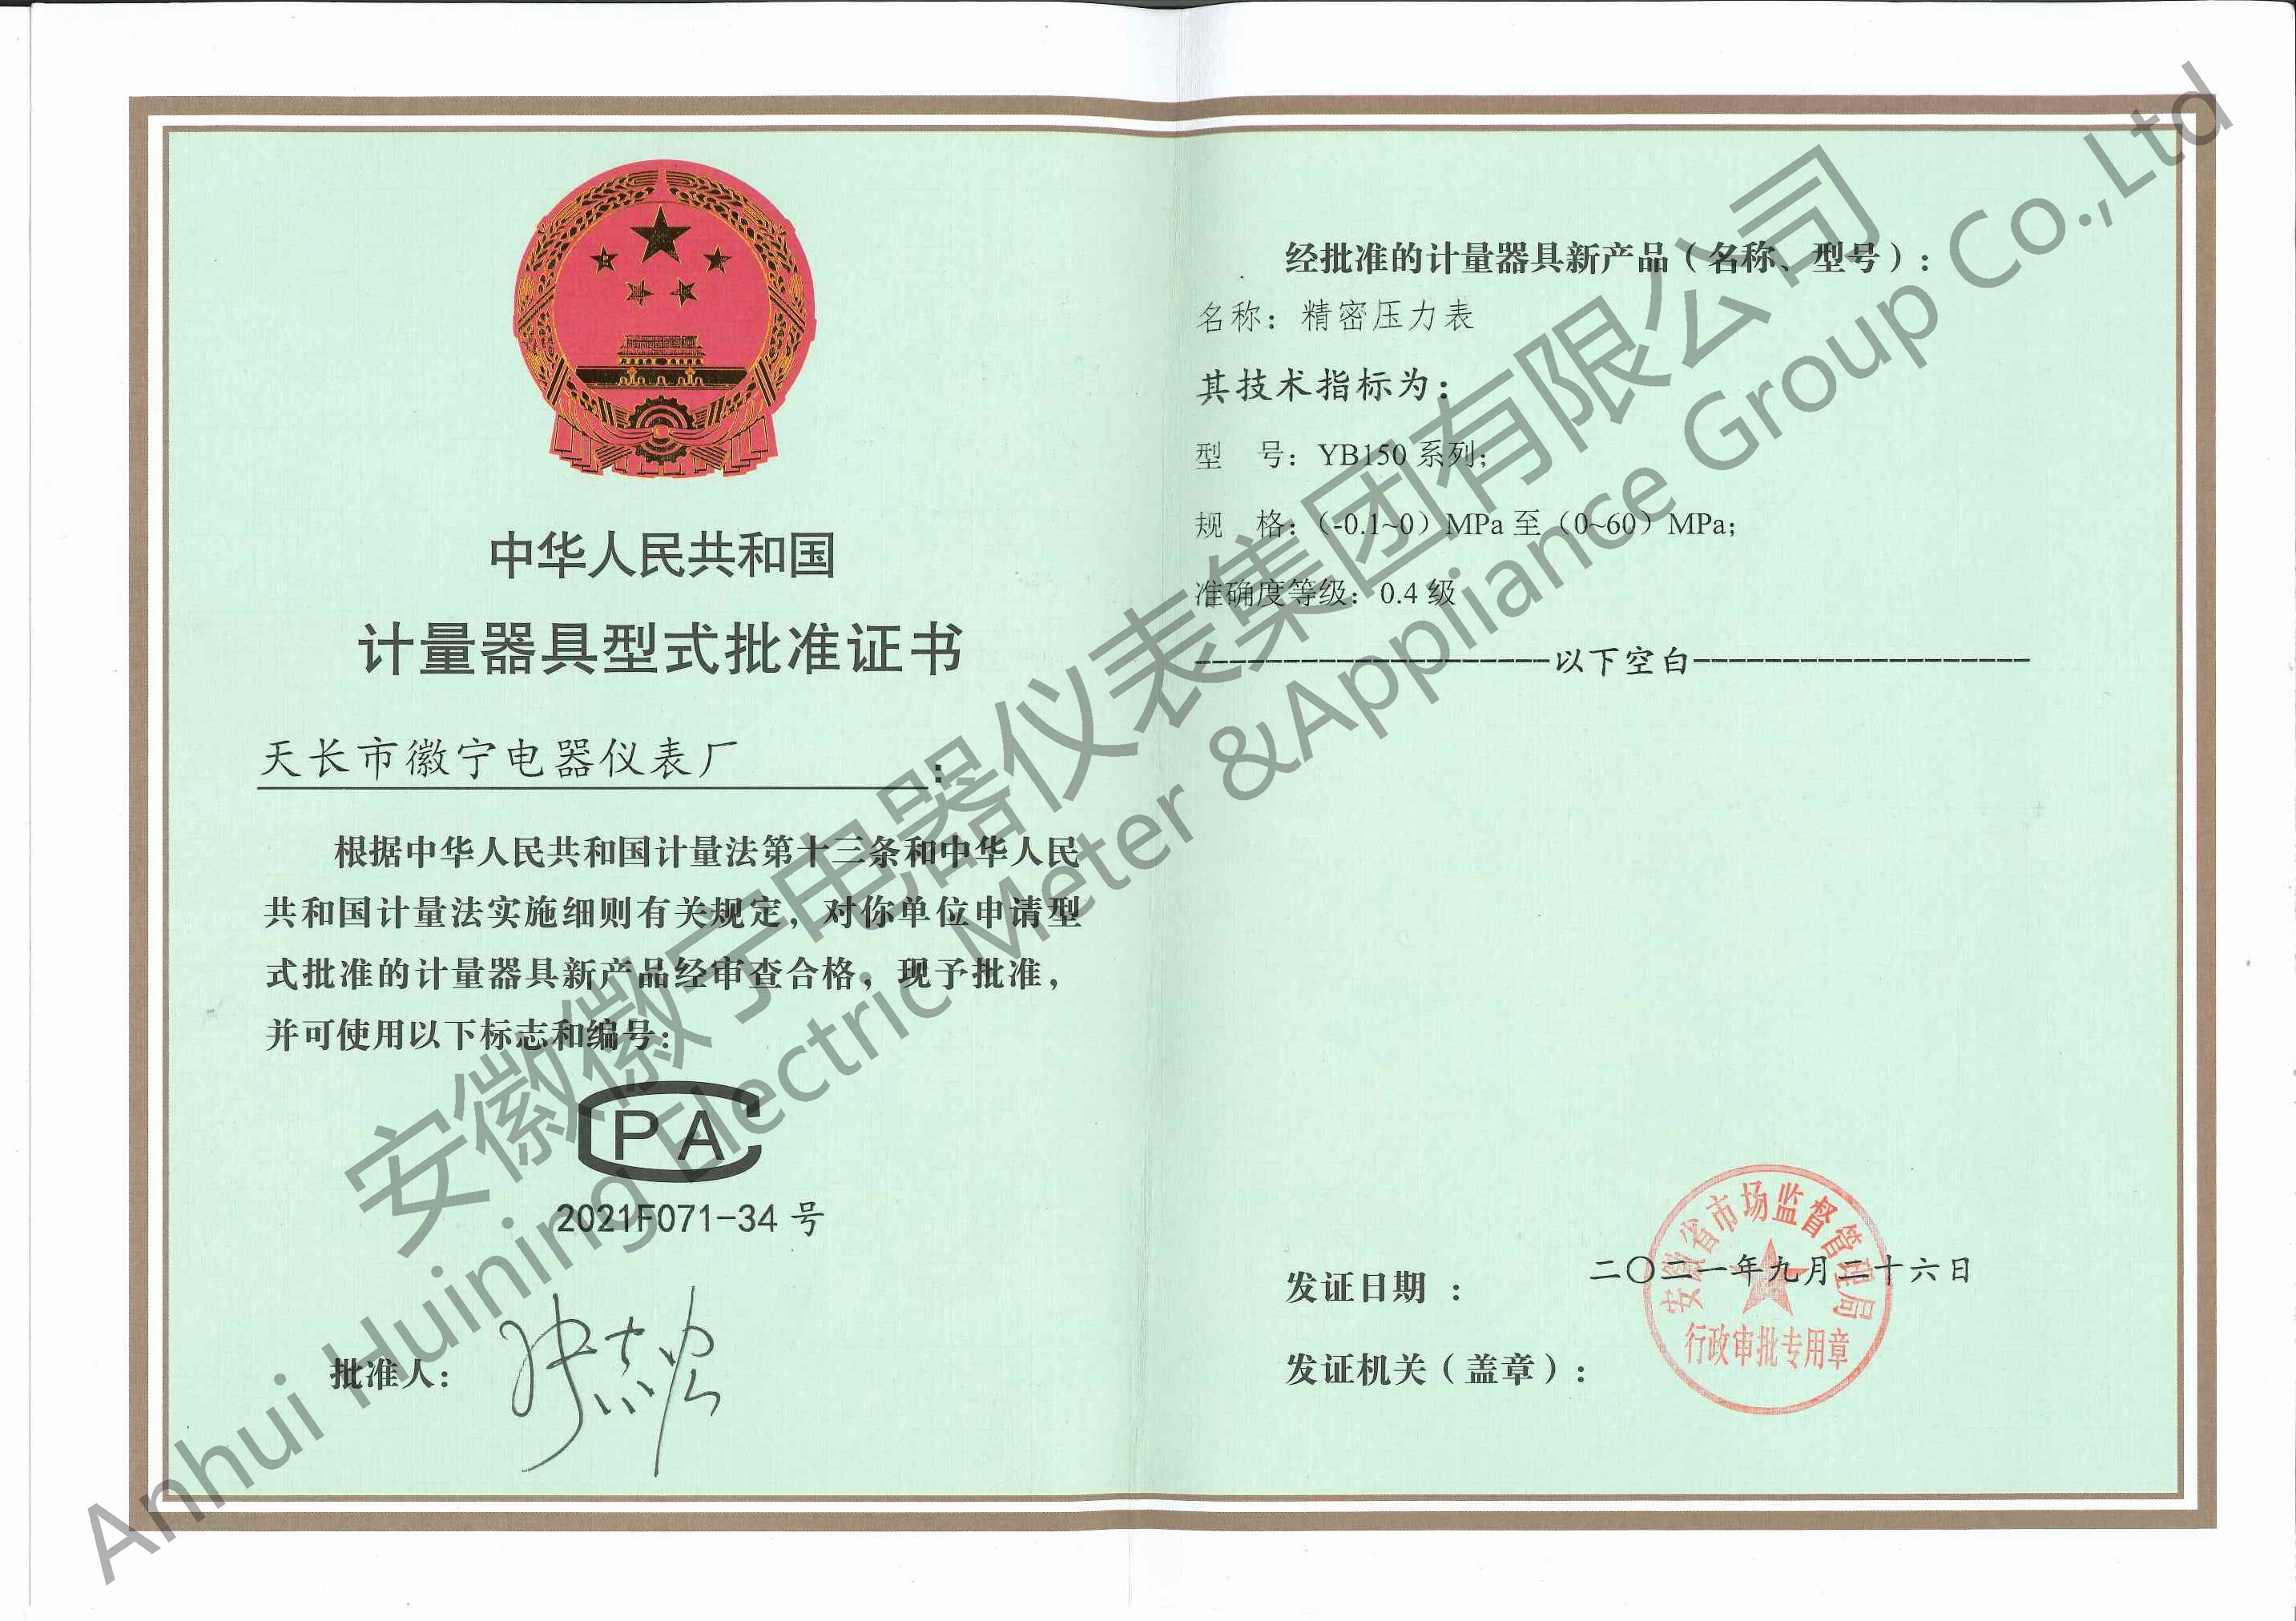 中华人民共和国
计量器具型式批准证书
天长市徽宁电器仪表厂：
根据中华人民共和国计量法第十三条和中华人民
共和国计量法实施细则有关规定，对你单位申请型
式批准的计量器具新产品经审查合格，现予批准，
并可使用以下标志和编号：
CPA
2021F071-34 号
批准人：
经批准的计量器具新产品（名称、型号）：
名称：精密压力表
其技术指标为：
型　号：YB150 系列；
规　格：（-0.1~0）MPa 至（0~60）MPa；
准确度等级：0.4 级
--------------------以下空白--------------------
发证日期：二〇二一年九月二十六日
发证机关（盖章）：
安徽省市场监督管理局
行政审批专用章
安徽徽宁电器仪表集团有限公司
Anhui Huining Electric Meter &Appliance Group Co.,Ltd